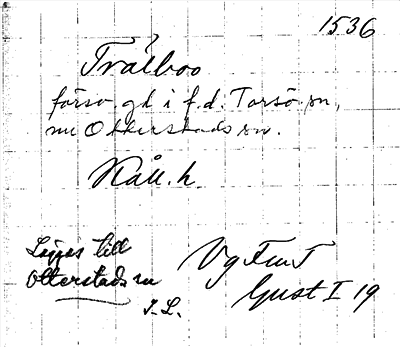 1536
Trälboo
försv. gd i f.d. Torsö sn,
nu Otterstads sn.
Kåll. h.
Lägges till
Otterstads sn
I.L.
Vg FmT
Gust I 19